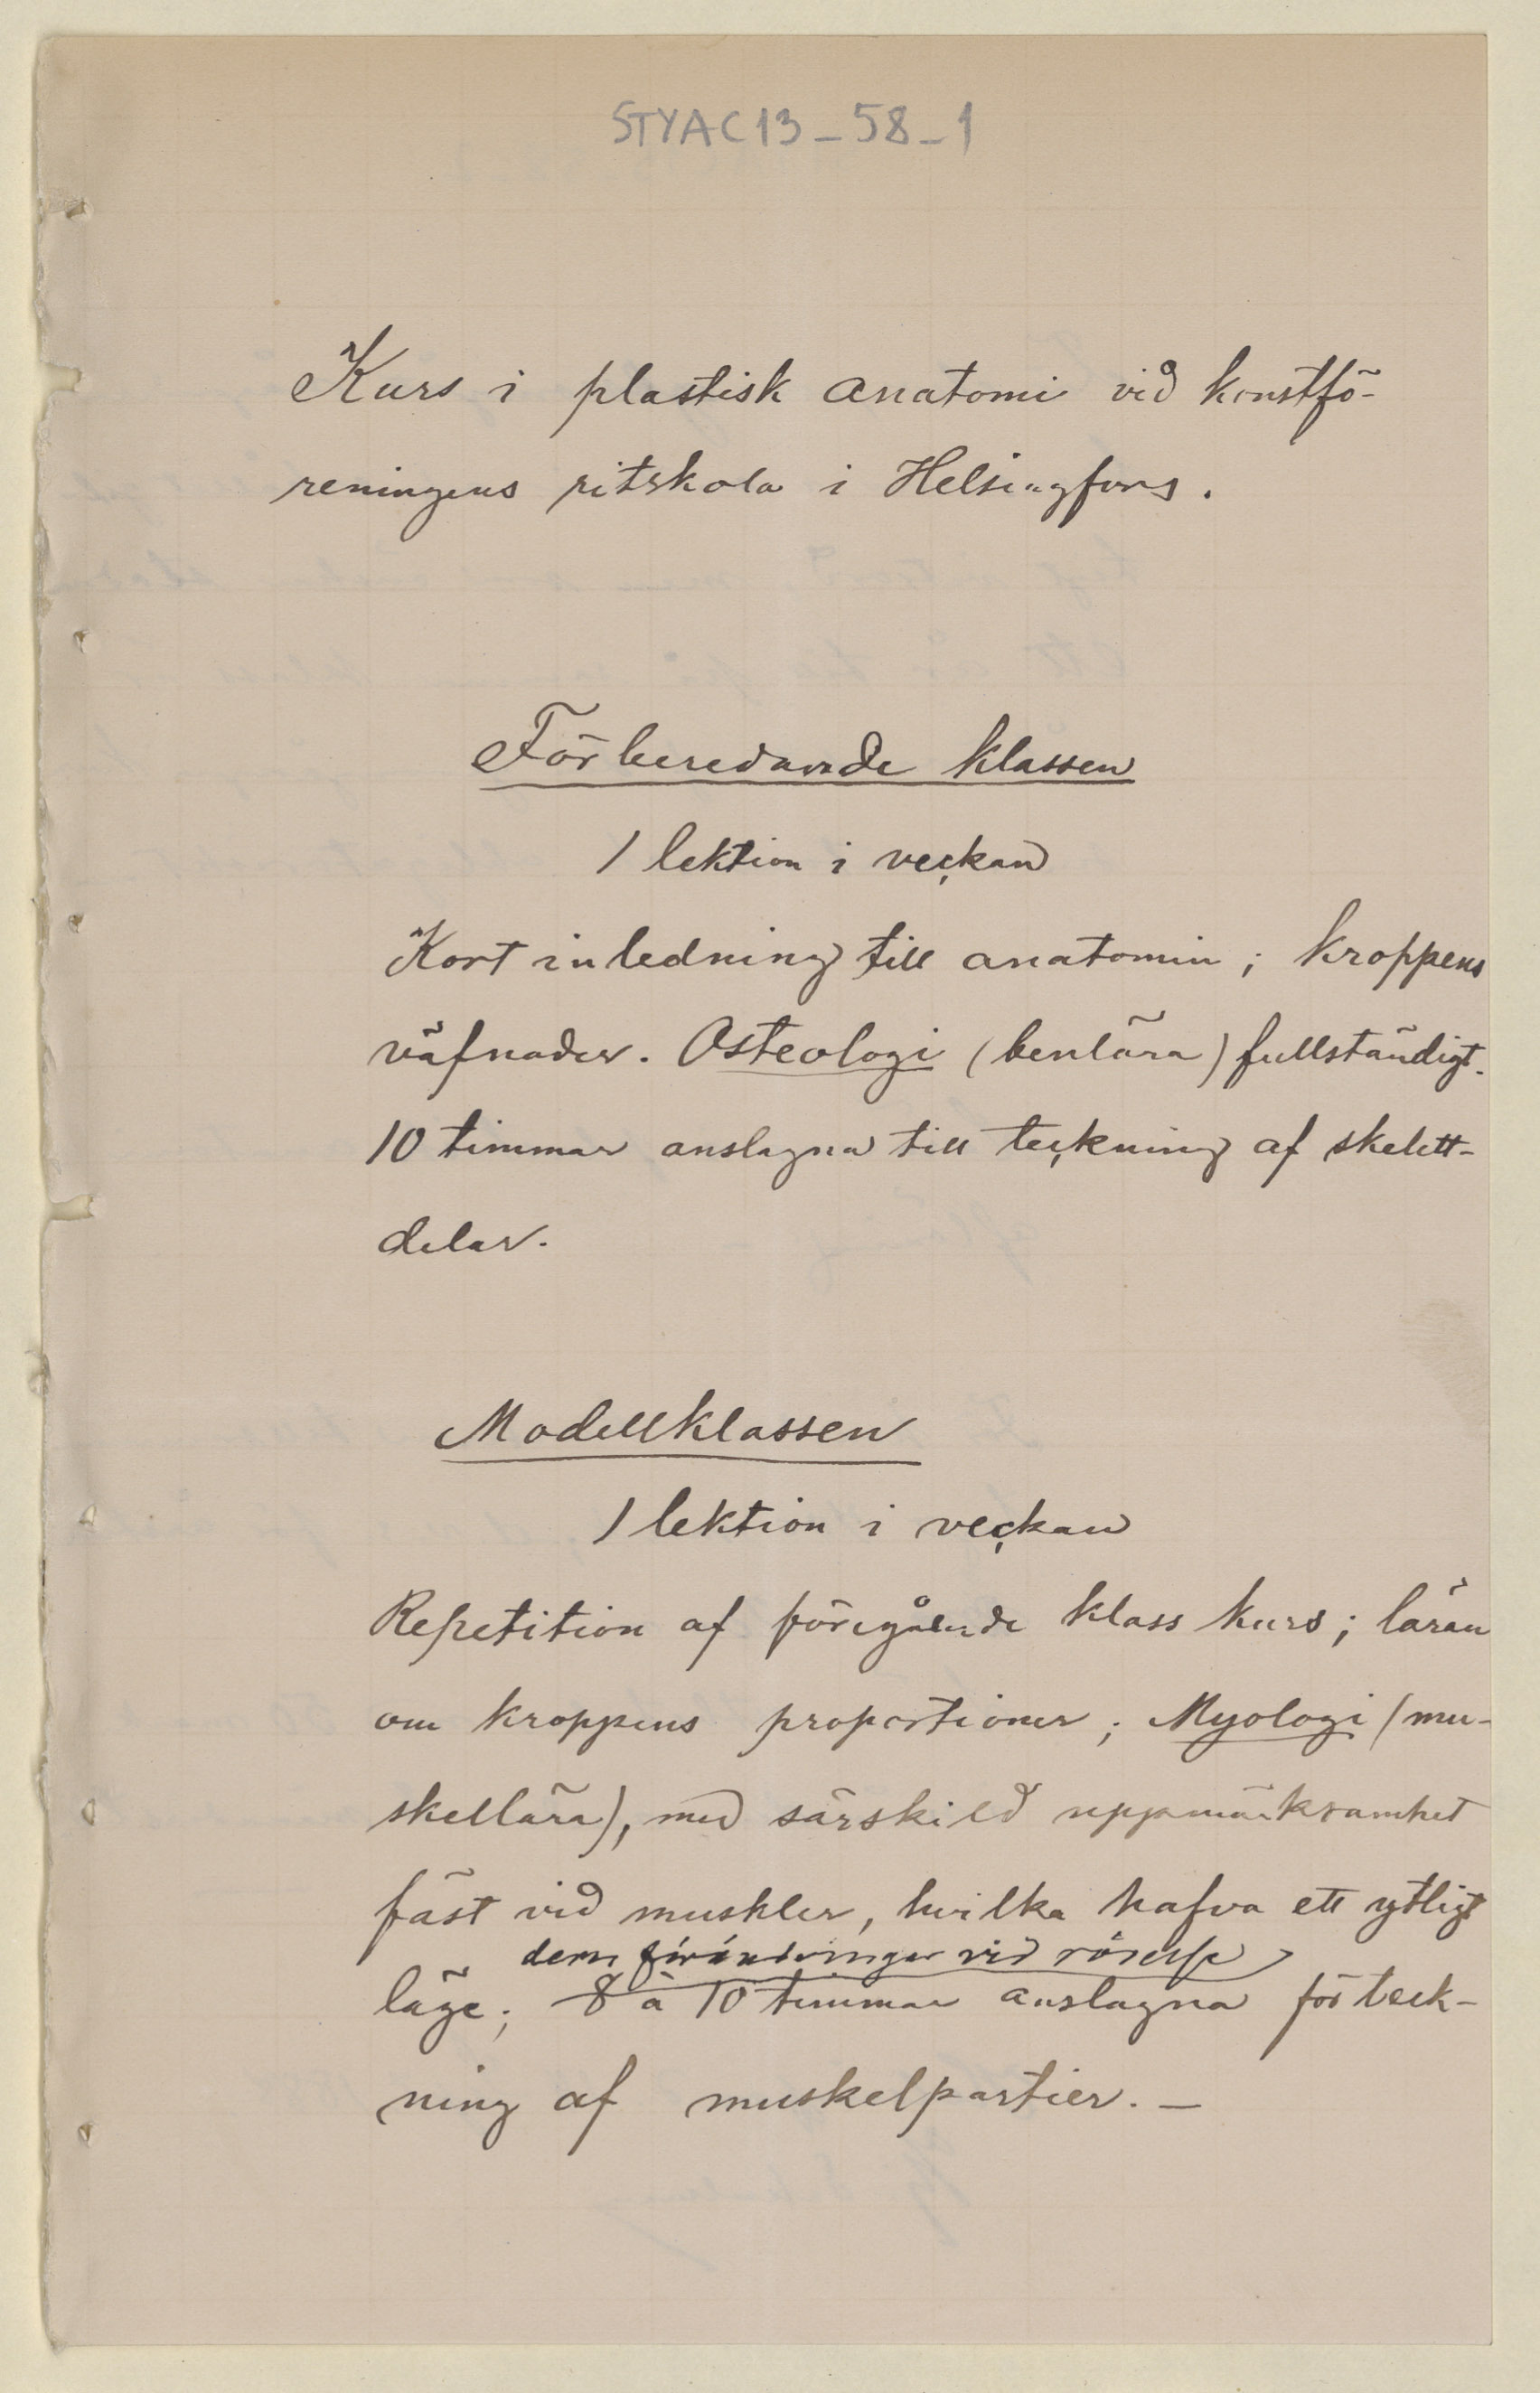 STYAC13_58_1
Kurs i plastisk anatomi vid konstfö-
reningens ritskola i Helsingfors.
Förberedande klassen
1 lektion i veckan
Kort inledning till anatomin; kroppens
väfnader. Osteologi (benlära) fullständigt.
10 timmar anslagna till teckning af skelett-
delar.
Modellklassen
1 lektion i veckan
Repetition af föregående klass kurs; läran
om kroppens proportioner; Myologi (mu-
skellära), med särskild uppmärksamhet
fäst vid muskler, hvilka hafva ett ytligt
deras förändringar vid rörelse
läge; 8 à 10 timmar anslagna för teck-
ning af muskelpartier. —